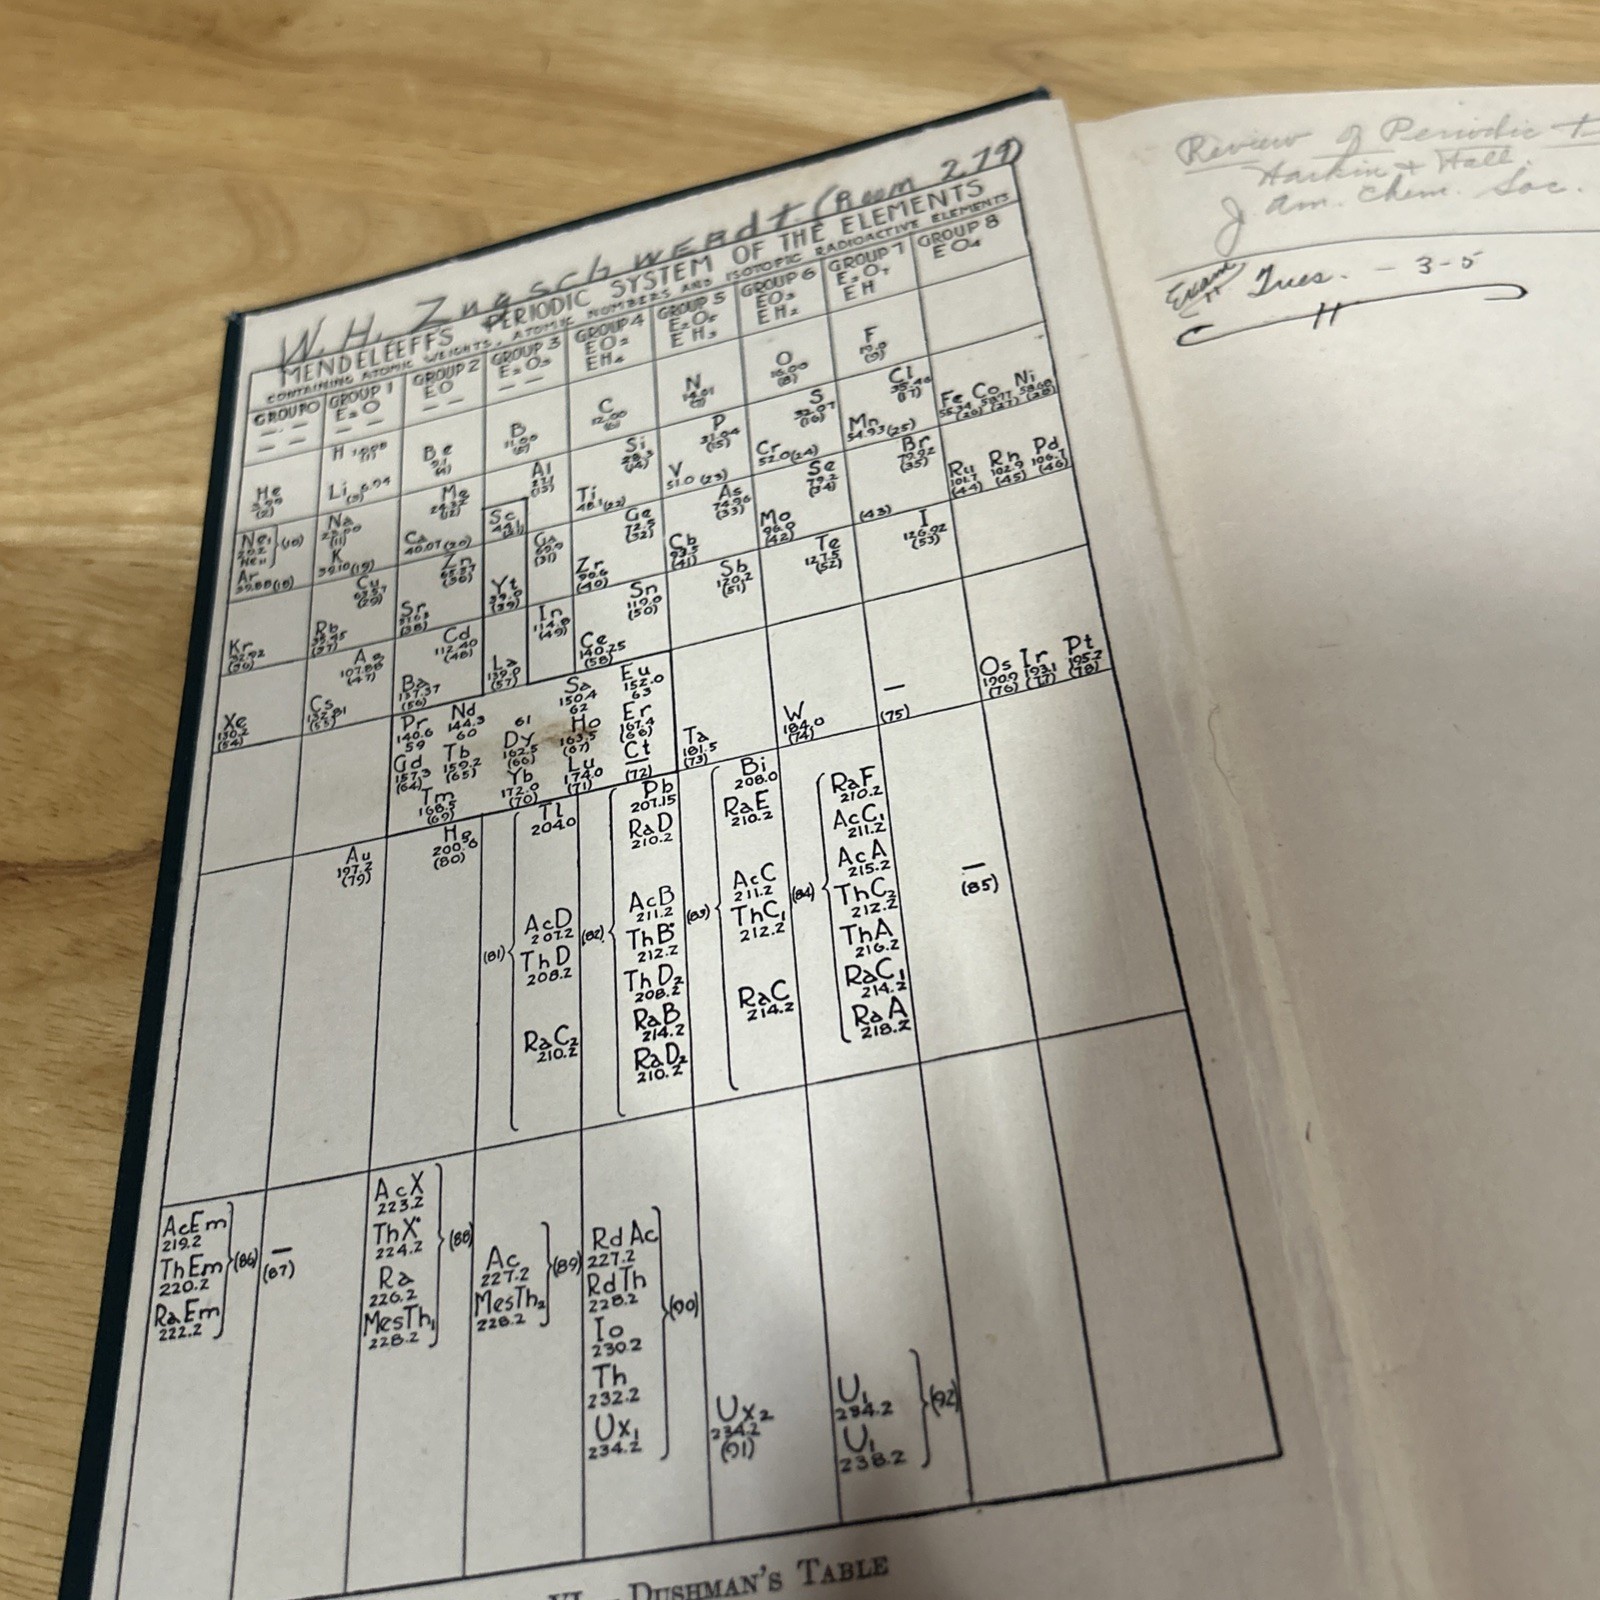 W. H. Zugschwerdt (Room 279)
MENDELEEFFS PERIODIC SYSTEM OF THE ELEMENTS
CONTAINING ATOMIC WEIGHTS, ATOMIC NUMBERS AND ISOTOPIC RADIOACTIVE ELEMENTS
GROUP 0 GROUP 1 GROUP 2 GROUP 3 GROUP 4 GROUP 5 GROUP 6 GROUP 7 GROUP 8
— — E₂O EO E₂O₃ EO₂ E₂O₅ EO₃ E₂O₇ EO₄
— — — — — — — — EH₄ EH₃ EH₂ EH
H 1.008 (1)
He 3.99 (2) Li 6.94 (3) Be 9.1 (4) B 11.00 (5) C 12.00 (6) N 14.01 (7) O 16.00 (8) F 19.0 (9)
Ne 20.2 (10) Na 23.00 (11) Mg 24.32 (12) Al 27.1 (13) Si 28.3 (14) P 31.04 (15) S 32.07 (16) Cl 35.46 (17)
Ar 39.88 (18) K 39.10 (19) Ca 40.07 (20) Sc 44.1 Ti 48.1 (22) V 51.0 (23) Cr 52.0 (24) Mn 54.93 (25) Fe 55.84 (26) Co 58.97 (27) Ni 58.68 (28)
Cu 63.57 (29) Zn 65.37 (30) Ga 69.9 (31) Ge 72.5 (32) As 74.96 (33) Se 79.2 (34) Br 79.92 (35)
Kr 82.92 (36) Rb 85.45 (37) Sr 87.63 (38) Yt 89.0 (39) Zr 90.6 (40) Cb 93.5 (41) Mo 96.0 (42) (43) Ru 101.7 (44) Rh 102.9 (45) Pd 106.7 (46)
Ag 107.88 (47) Cd 112.40 (48) In 114.8 (49) Sn 119.0 (50) Sb 120.2 (51) Te 127.5 (52) I 126.92 (53)
Xe 130.2 (54) Cs 132.81 (55) Ba 137.37 (56) La 139.0 (57) Ce 140.25 (58)
Pr 140.6 59 Nd 144.3 60 61 Sa 150.4 62 Eu 152.0 63
Gd 157.3 (64) Tb 159.2 (65) Dy 162.5 (66) Ho 163.5 (67) Er 167.4 (68)
Tm 168.5 (69) Yb 172.0 (70) Lu 174.0 (71) Ct — (72) Ta 181.5 (73) W 184.0 (74) — (75) Os 190.9 (76) Ir 193.1 (77) Pt 195.2 (78)
Au 197.2 (79) Hg 200.6 (80)
(81) Tl 204.0
AcD 207.2
ThD 208.2
RaC₂ 210.2
(82) Pb 207.15
RaD 210.2
AcB 211.2
ThB 212.2
ThD₂ 208.2
RaB 214.2
RaD₂ 210.2
(83) Bi 208.0
RaE 210.2
AcC 211.2
ThC₁ 212.2
RaC 214.2
(84) RaF 210.2
AcC₁ 211.2
AcA 215.2
ThC₂ 212.2
ThA 216.2
RaC₁ 214.2
RaA 218.2
— (85)
AcEm 219.2
ThEm 220.2
RaEm 222.2
(86)
— (87)
AcX 223.2
ThX 224.2
Ra 226.2
MesTh₁ 228.2
(88)
Ac 227.2
MesTh₂ 228.2
(89)
RdAc 227.2
RdTh 228.2
Io 230.2
Th 232.2
Ux₁ 234.2
(90)
Ux₂ 234.2 (91)
U₁ 234.2
U₁ 238.2
(92)
VI.—DUSHMAN'S TABLE
Review of Periodic
Harkin & Hall.
J. Am. Chem. Soc.
Exam Tues. - 3-5